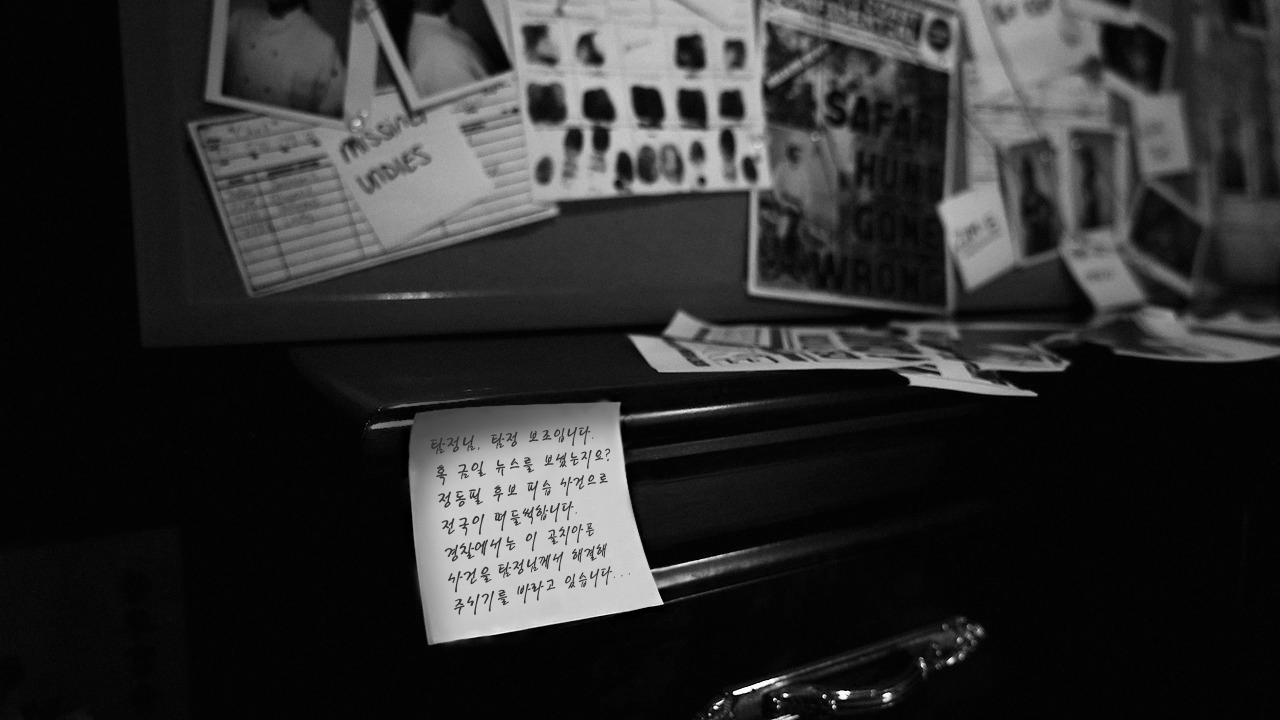 MISSING
UNDIES
SAFARI
HUNT
GONE
WRONG
탐정님, 탐정 보조입니다.
혹 금일 뉴스를 보셨는지요?
정동필 후보 피습 사건으로
전국이 떠들썩합니다.
경찰에서는 이 골치아픈
사건을 탐정님께서 해결해
주시기를 바라고 있습니다...